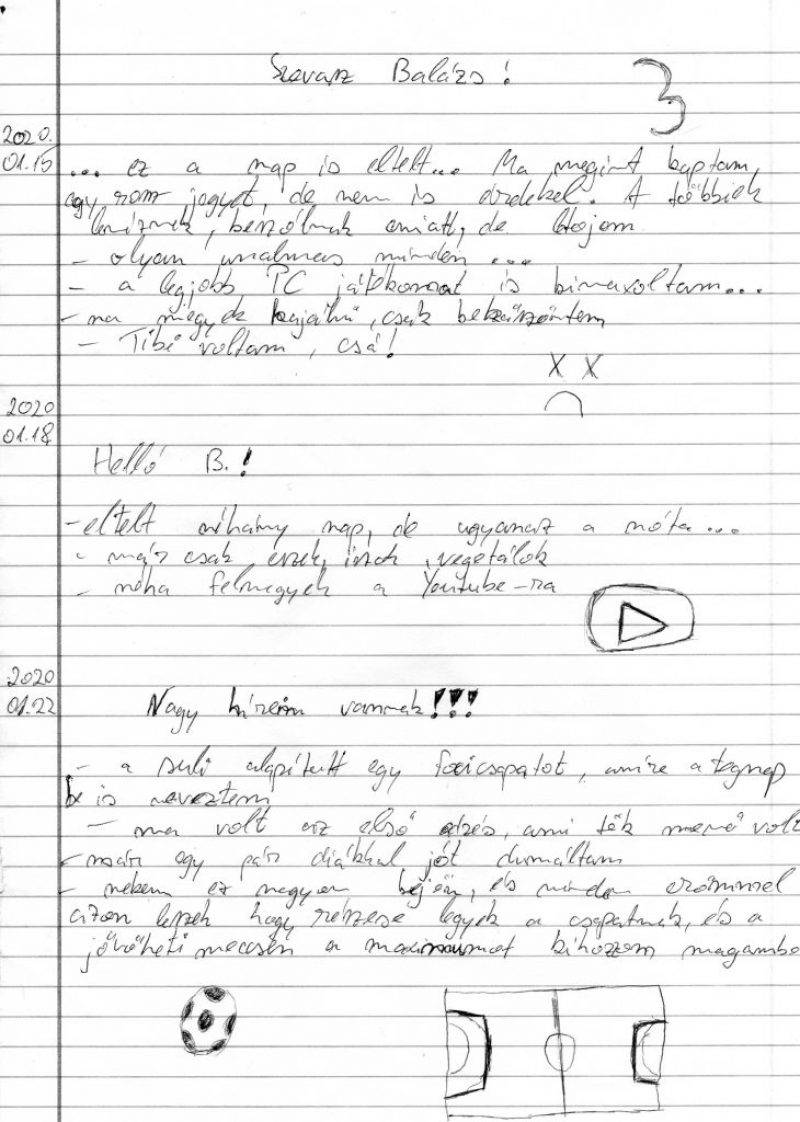 Szevasz Balázs!
3
2020.
01.15
... ez a nap is eltelt... Ma megint kaptam
egy rossz jegyet, de nem is érdekel. A többiek
lenéznek, beszólnak emiatt, de
- olyan unalmas minden ...
- a legjobb PC játékomat is kimaxoltam...
- na megyek kajálni, csak beköszöntem
- Tibi voltam, csá!
X X
2020
01.18
Helló B.!
- eltelt néhány nap, de ugyanaz a nóta...
- már csak eszek, iszok, vegetálok
- néha felmegyek a Youtube-ra
2020
01.22
Nagy híreim vannak!!!
- a suli alapított egy focicsapatot, amire a tegnap
be is neveztem
- ma volt az első edzés, ami tök menő volt
- már egy pár diákkal jót dumáltam
- nekem ez nagyon bejön, és minden erőmmel
azon leszek hogy részese legyek a csapatnak, és a
jövőheti meccsen a maximumot kihozzam magambó